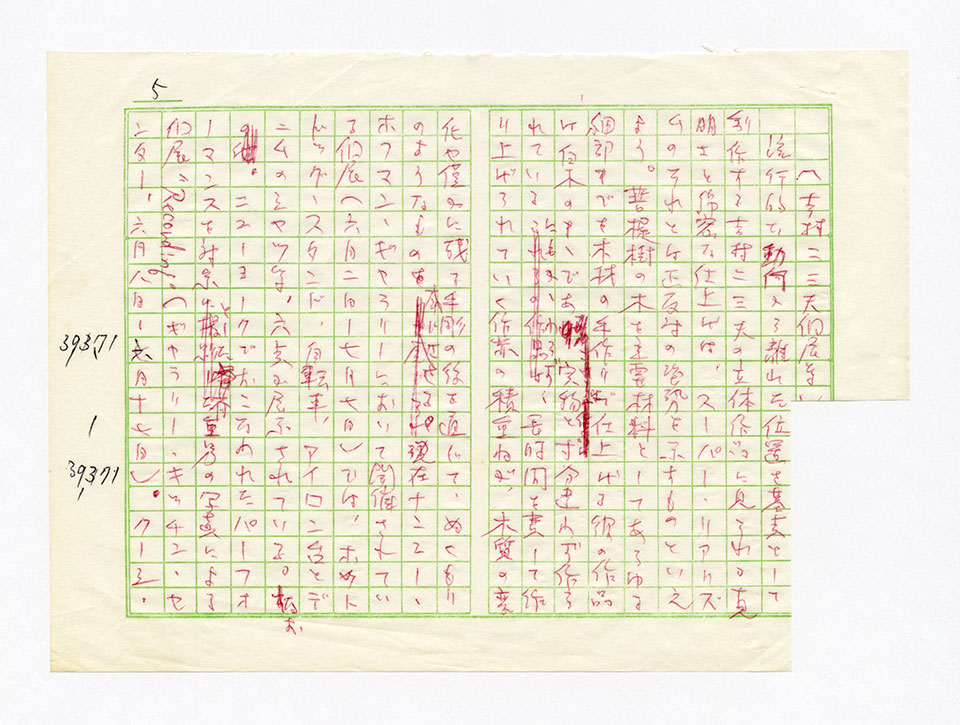 5
〈吉村二三夫個展を〉
流行的な動向から離れた位置を基点として
制作する吉村二三夫の立体作品に見られる克
明さと綿密な仕上げは、スーパー・リアリズ
ムのそれとは正反対の姿勢を示すものといえ
よう。菩提樹の木を主要材料としてあらゆる
細部までを木材の手作りで仕上げる彼の作品
は白木のままであり、実物と寸分違わず作ら
れている 長時間を費して作
り上げられていく作業の積重ねが、木質の変
化や僅かに残る手彫の後を通じて、ぬくもり
のようなものを 現在ナンシー・
ホフマン・ギャラリーにおいて開催されてい
る個展〈六月二日―七月七日〉では、ホット
ドッグ・スタンド、自転車、アイロン台とデ
ニムのシャツ等、六点が展示されている。なお
ニューヨークでおこなわれたパーフォ
ーマンスを対象に 重男の写真による
個展“Recording”〈ギャラリー・キッチン・セ
ンター、六月八日―六月十七日〉。クーパー・
39371
1
39371